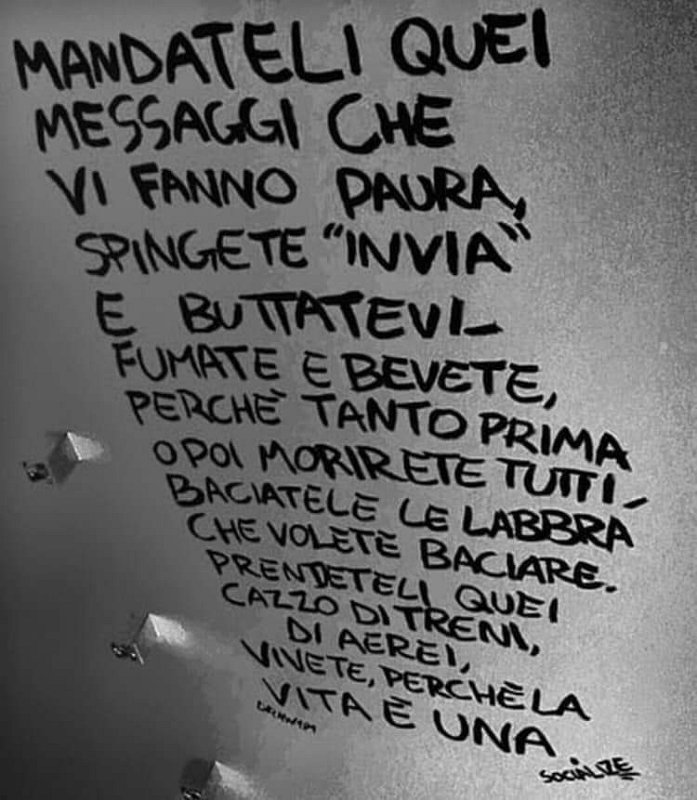 MANDATELI QUEI
MESSAGGI CHE
VI FANNO PAURA,
SPINGETE "INVIA"
E BUTTATEVI_
FUMATE E BEVETE,
PERCHÈ TANTO PRIMA
O POI MORIRETE TUTTI,
BACIATELE LE LABBRA
CHE VOLETE BACIARE.
PRENDETELI QUEI
CAZZO DI TRENI,
DI AEREI,
VIVETE, PERCHÈ LA
VITA È UNA
SOCIALIZE